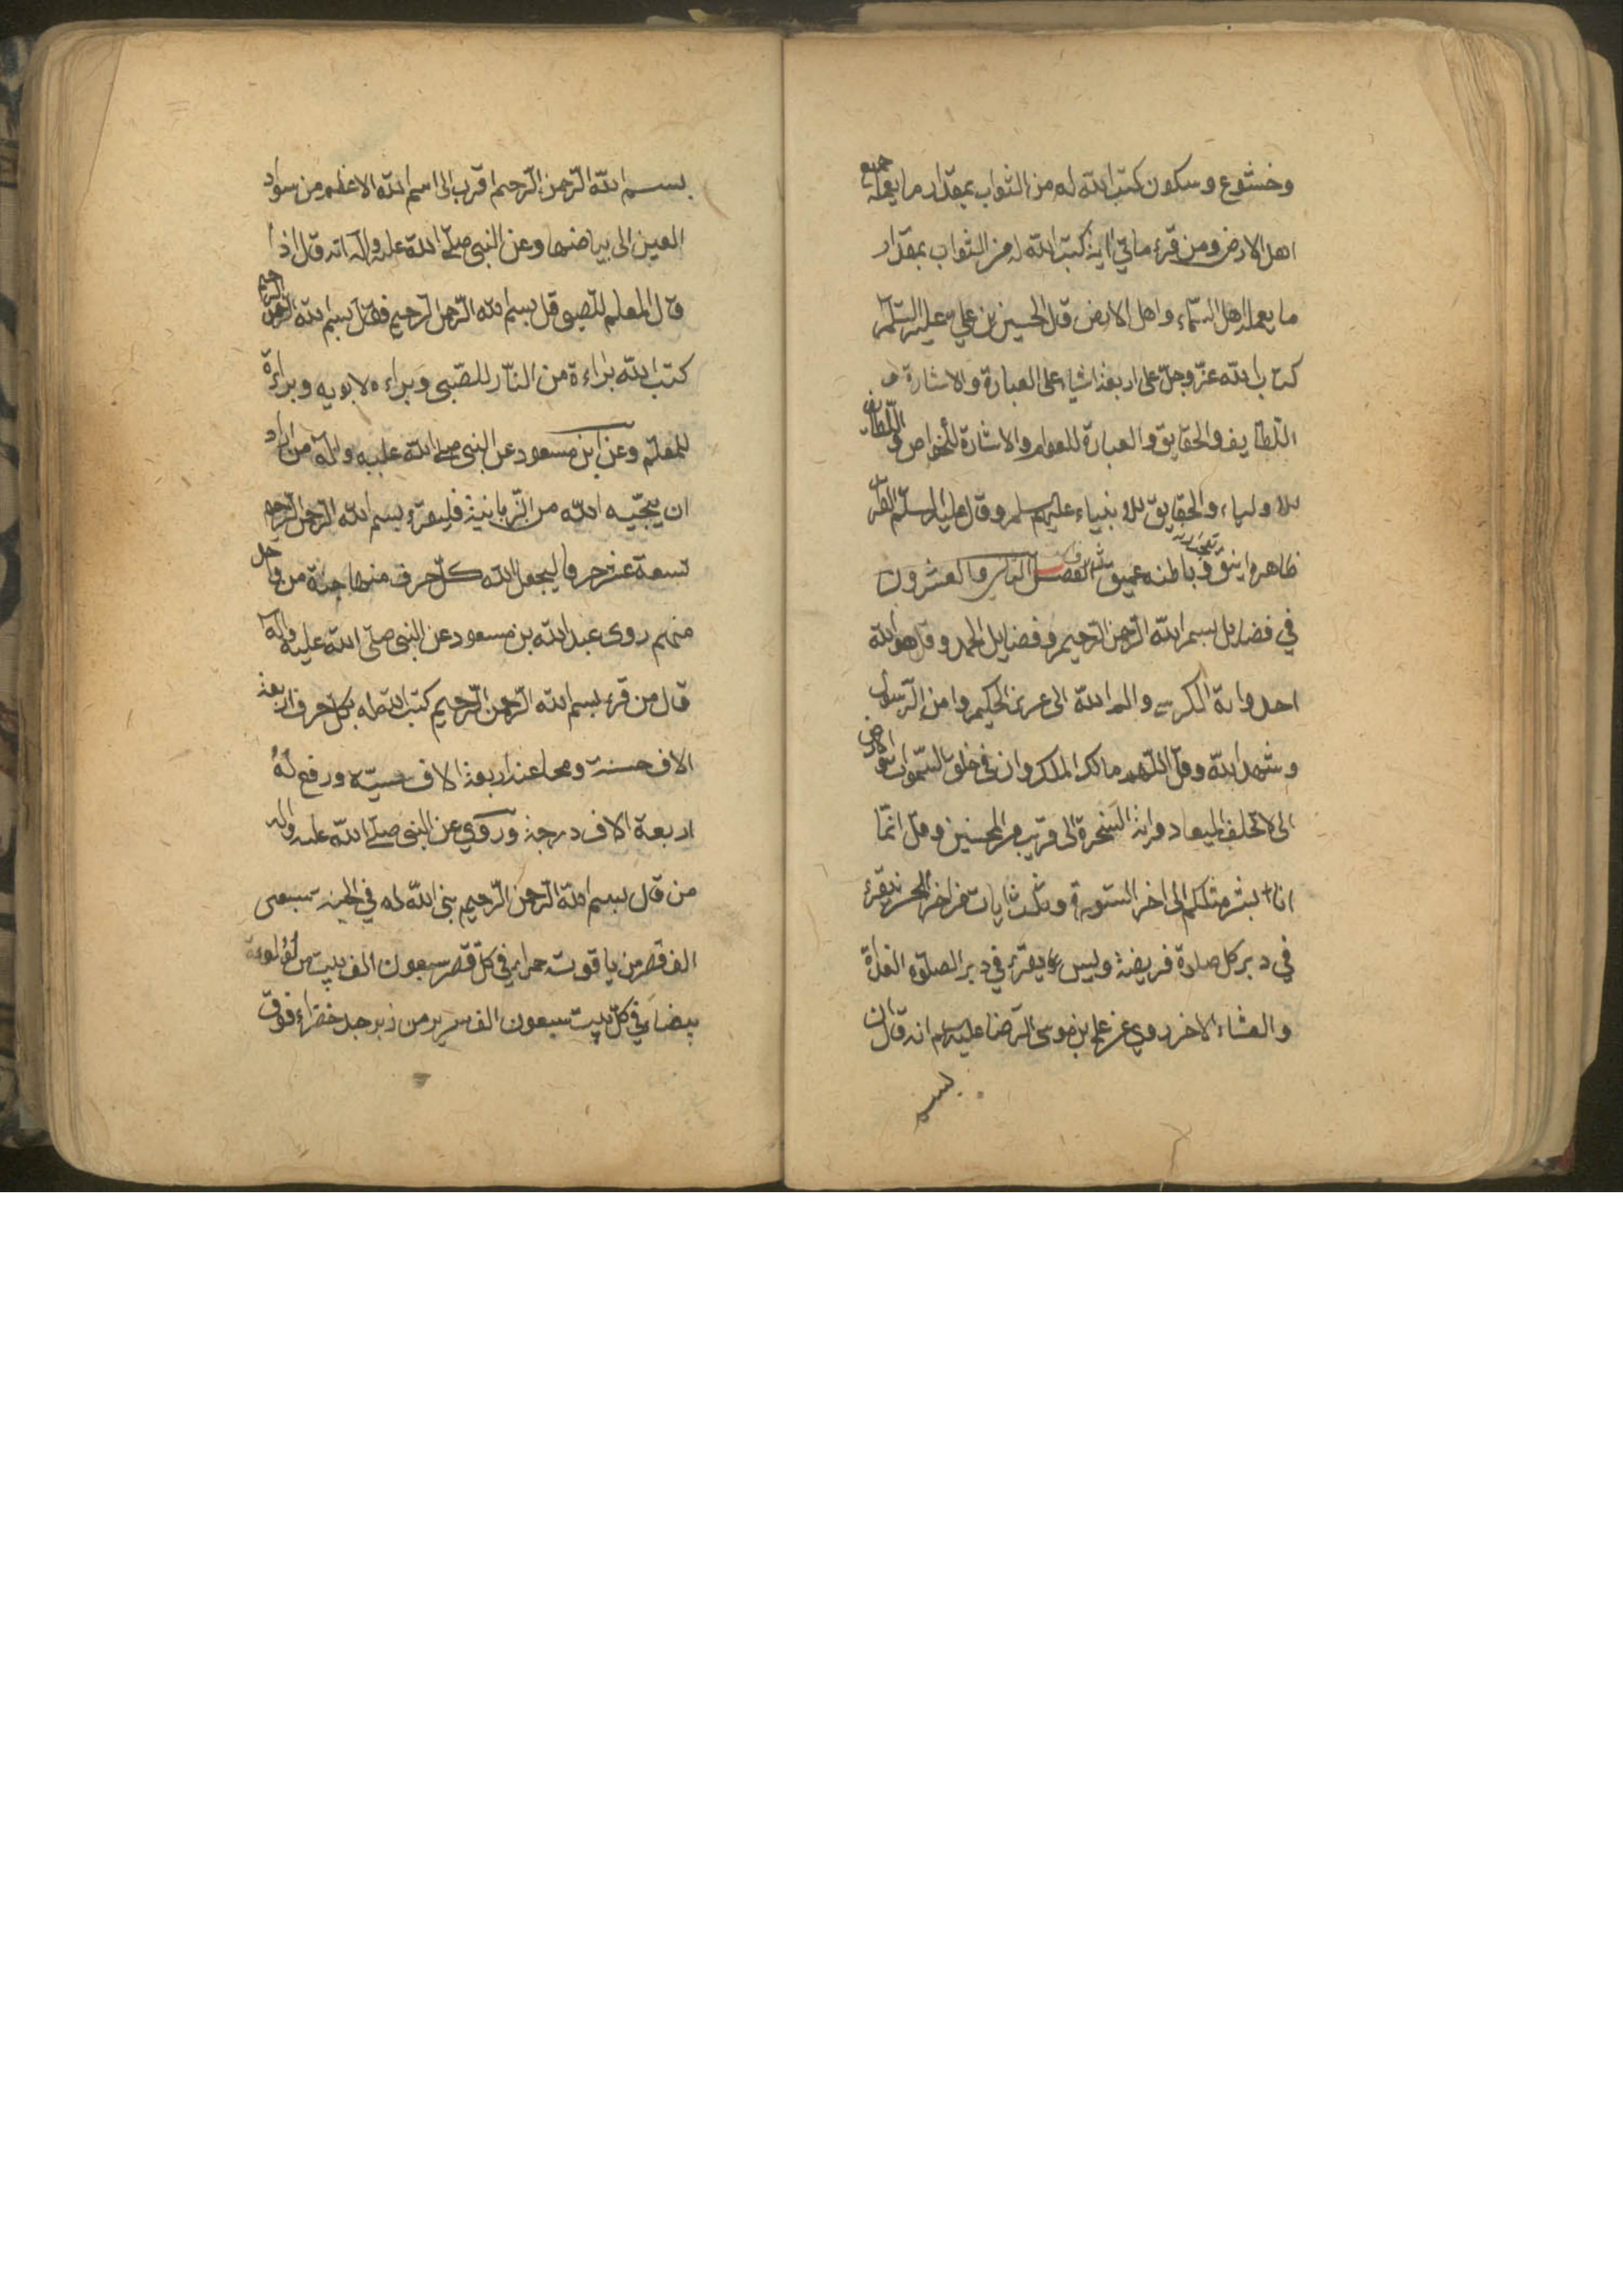 وخشوع وسكون كتب الله له من الثواب بمقدار ما يعمله جميع
اهل الارض ومن قرء مأتي اية كتب الله له من الثواب بمقدار
ما يعمله اهل السماء واهل الارض قال الحسين بن علي عليه السلم
كتاب الله عز وجل على اربعة اشياء على العبارة والاشارة و
اللطايف والحقايق والعبارة للعوام والاشارة للخواص واللطايف
للاولياء والحقايق للانبياء عليهم سلم وقال عليه السلم القرآن
ظاهره انيق وباطنه عميق الفصل الثاني والعشرون
في فضايل بسم الله الرحمن الرحيم وفضايل الحمد وقل هو الله
احد واية الكرسي والم الله الى عزيز الحكيم وامن الرسول
وشهد الله وقل اللهم مالك الملك وان في خلق السموات والارض
الى لا تخلف الميعاد واية السخرة الى قريب من المحسنين وقل انما
انا بشر مثلكم الى اخر السورة وثلث ايات من اخر الحشر يقرء
في دبر كل صلوة فريضة ويس يقرء في دبر الصلوة الغداة
والعشاء الاخر روي عن علي بن موسى الرضا عليهم انه قال ان
بسم
بسم الله الرحمن الرحيم اقرب الى اسم الله الاعظم من سواد
العين الى بياضها وعن النبي صلى الله عليه واله انه قال اذا
قال المعلم للصبي قل بسم الله الرحمن الرحيم فقال بسم الله الرحمن الرحيم
كتب الله براءة من النار للصبي وبراءه لابويه وبراءة
للمعلم وعن ابن مسعود عن النبي صلى الله عليه واله من اراد
ان ينجيه الله من الزبانية فليقرء بسم الله الرحمن الرحيم
تسعة عشر حرفا ليجعل الله كل حرف منها جنة من واحد
منهم روى عبد الله بن مسعود عن النبي صلى الله عليه واله
قال من قرء بسم الله الرحمن الرحيم كتب الله له بكل حرف اربعة
الاف حسنة ومحا عنه اربعة الاف سيئه ورفع له
اربعة الاف درجة وروي عن النبي صلى الله عليه واله
من قال بسم الله الرحمن الرحيم بنى الله له في الجنة سبعين
الف قصر من ياقوتة حمراء في كل قصر سبعون الف بيت من لؤلؤة
بيضاء في كل بيت سبعون الف سرير من زبرجد خضراء فوق